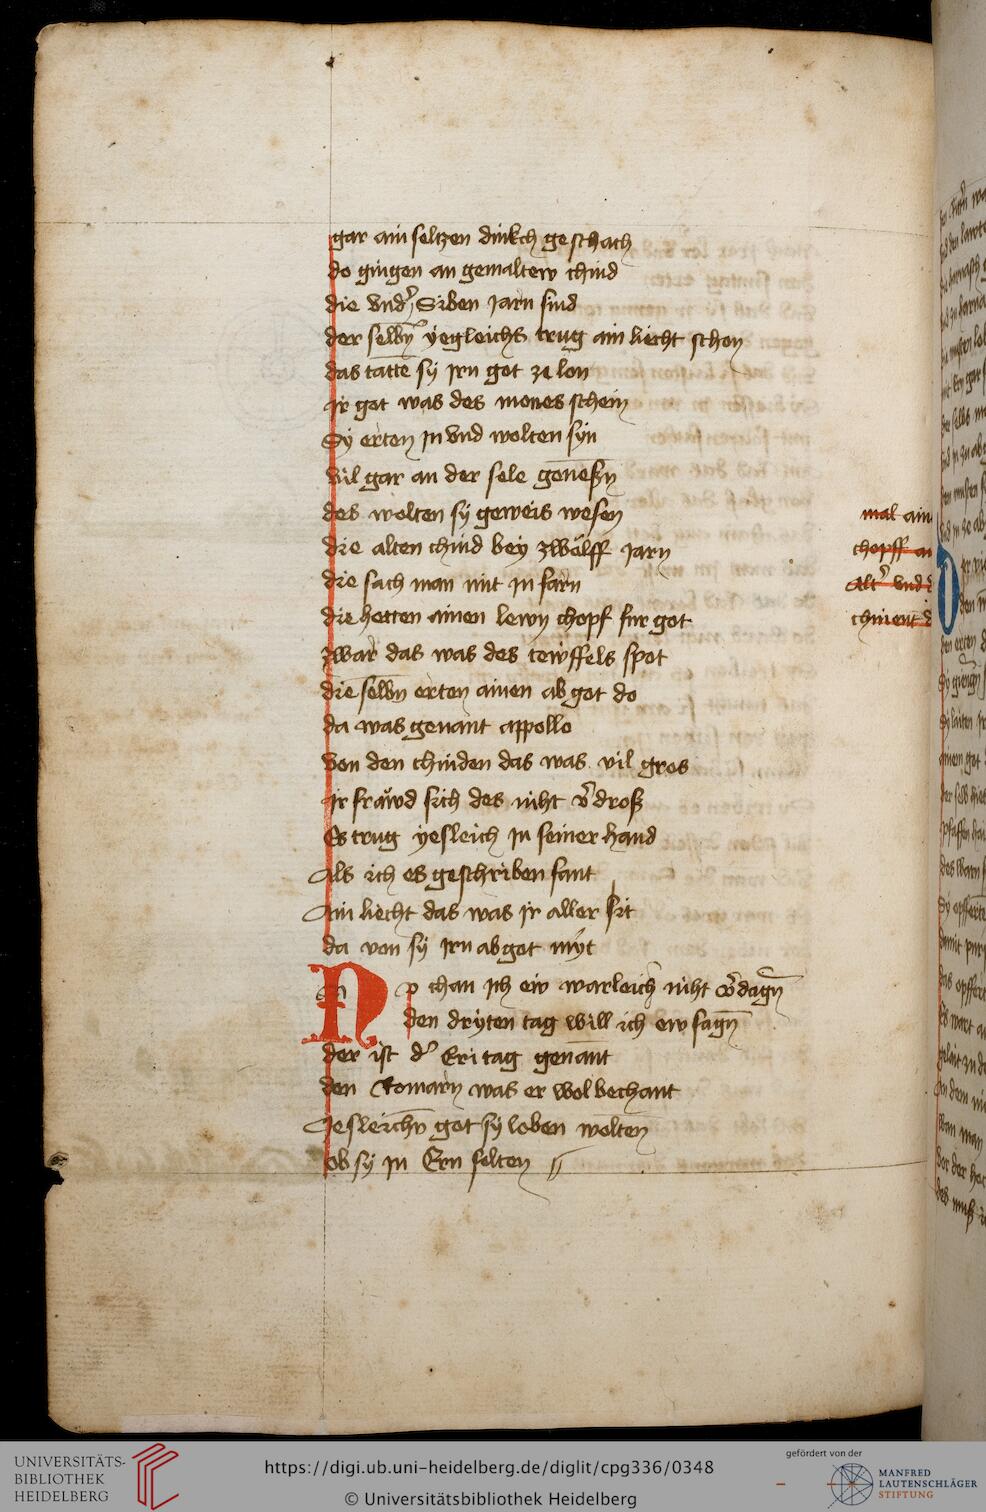 gar ain seltzen dinkch geschach
do gingen an gemaltew chind
die vnd͛ Siben Jarn sind
der selbn̄ yegleichs trug ain liecht schon
das tattē sy Jrn got zu lon
Jr got was des mones schein
Sy erten Jn vnd wolten syn
vil gar an der sele gene̅ßn̄
des wolten sy geweis wesen
die alten chind bey zwölff Jarn
die sach man mit Jn farn
die hetten ainen lewn chopf fur got
zwar das was des tewffels spot
die selbn̄ erten ainen abgot do
da was genant appollo
von den chinden das was vil gros
Jr fräwd sich des niht v͛droß
Es trug yesleich Jn seiner hand
Als ich es geschriben fant
Ain liecht das was Jr aller sit
da von sy Jrn abgot myt
Nv chan Jch ew warleich niht v͛dagn̄
den dryten tag will ich ew sagn̄
der ist d͛ Eritag genant
den Romarn was er wol bechant
Jesleichn̄ got sy loben wolten
ob sy Jn Ern solten
mal ain
chopff an
Alt͛ vnd
chinent
UNIVERSITÄTS-
BIBLIOTHEK
HEIDELBERG
https://digi.ub.uni-heidelberg.de/diglit/cpg336/0348
© Universitätsbibliothek Heidelberg
gefördert von der
MANFRED
LAUTENSCHLÄGER
STIFTUNG